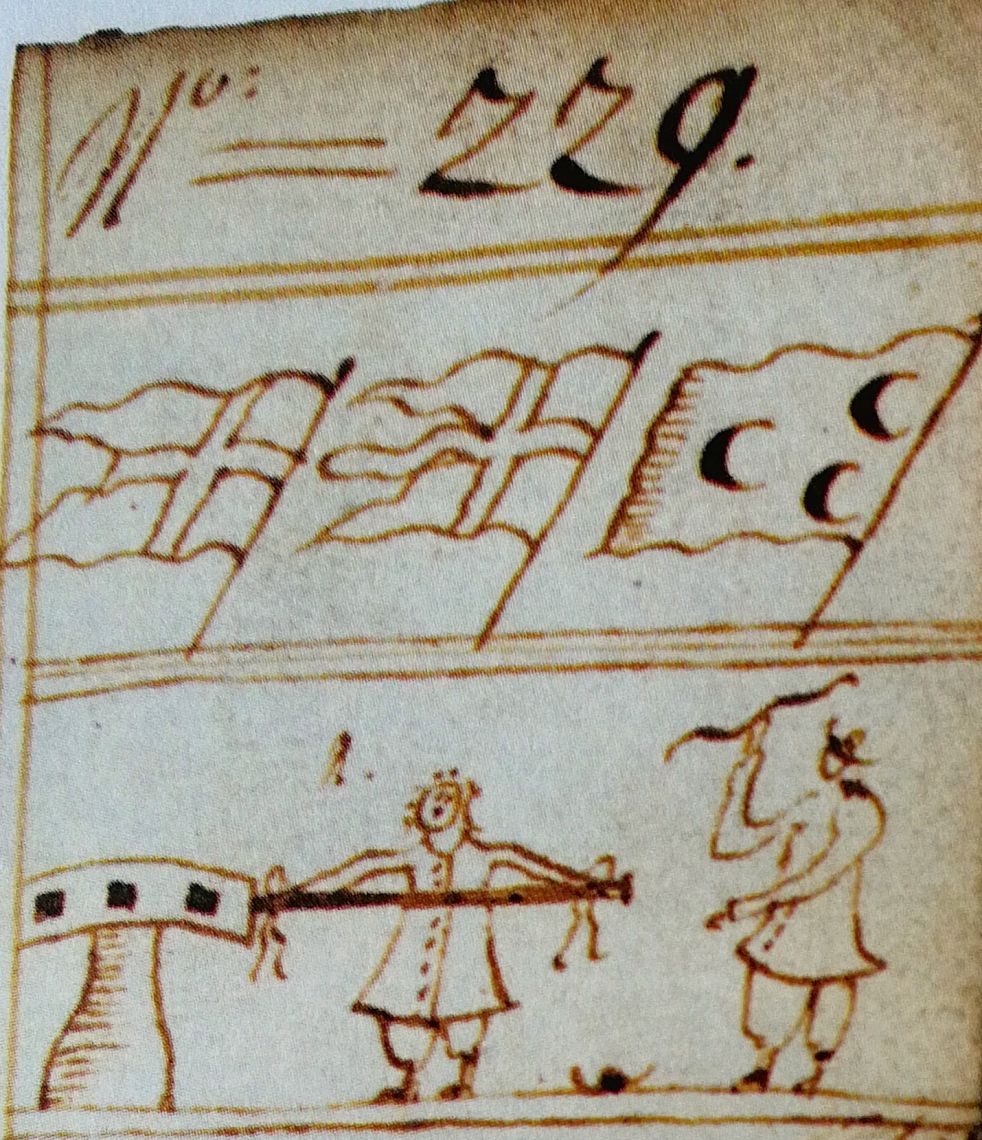 No: = 229.
1.